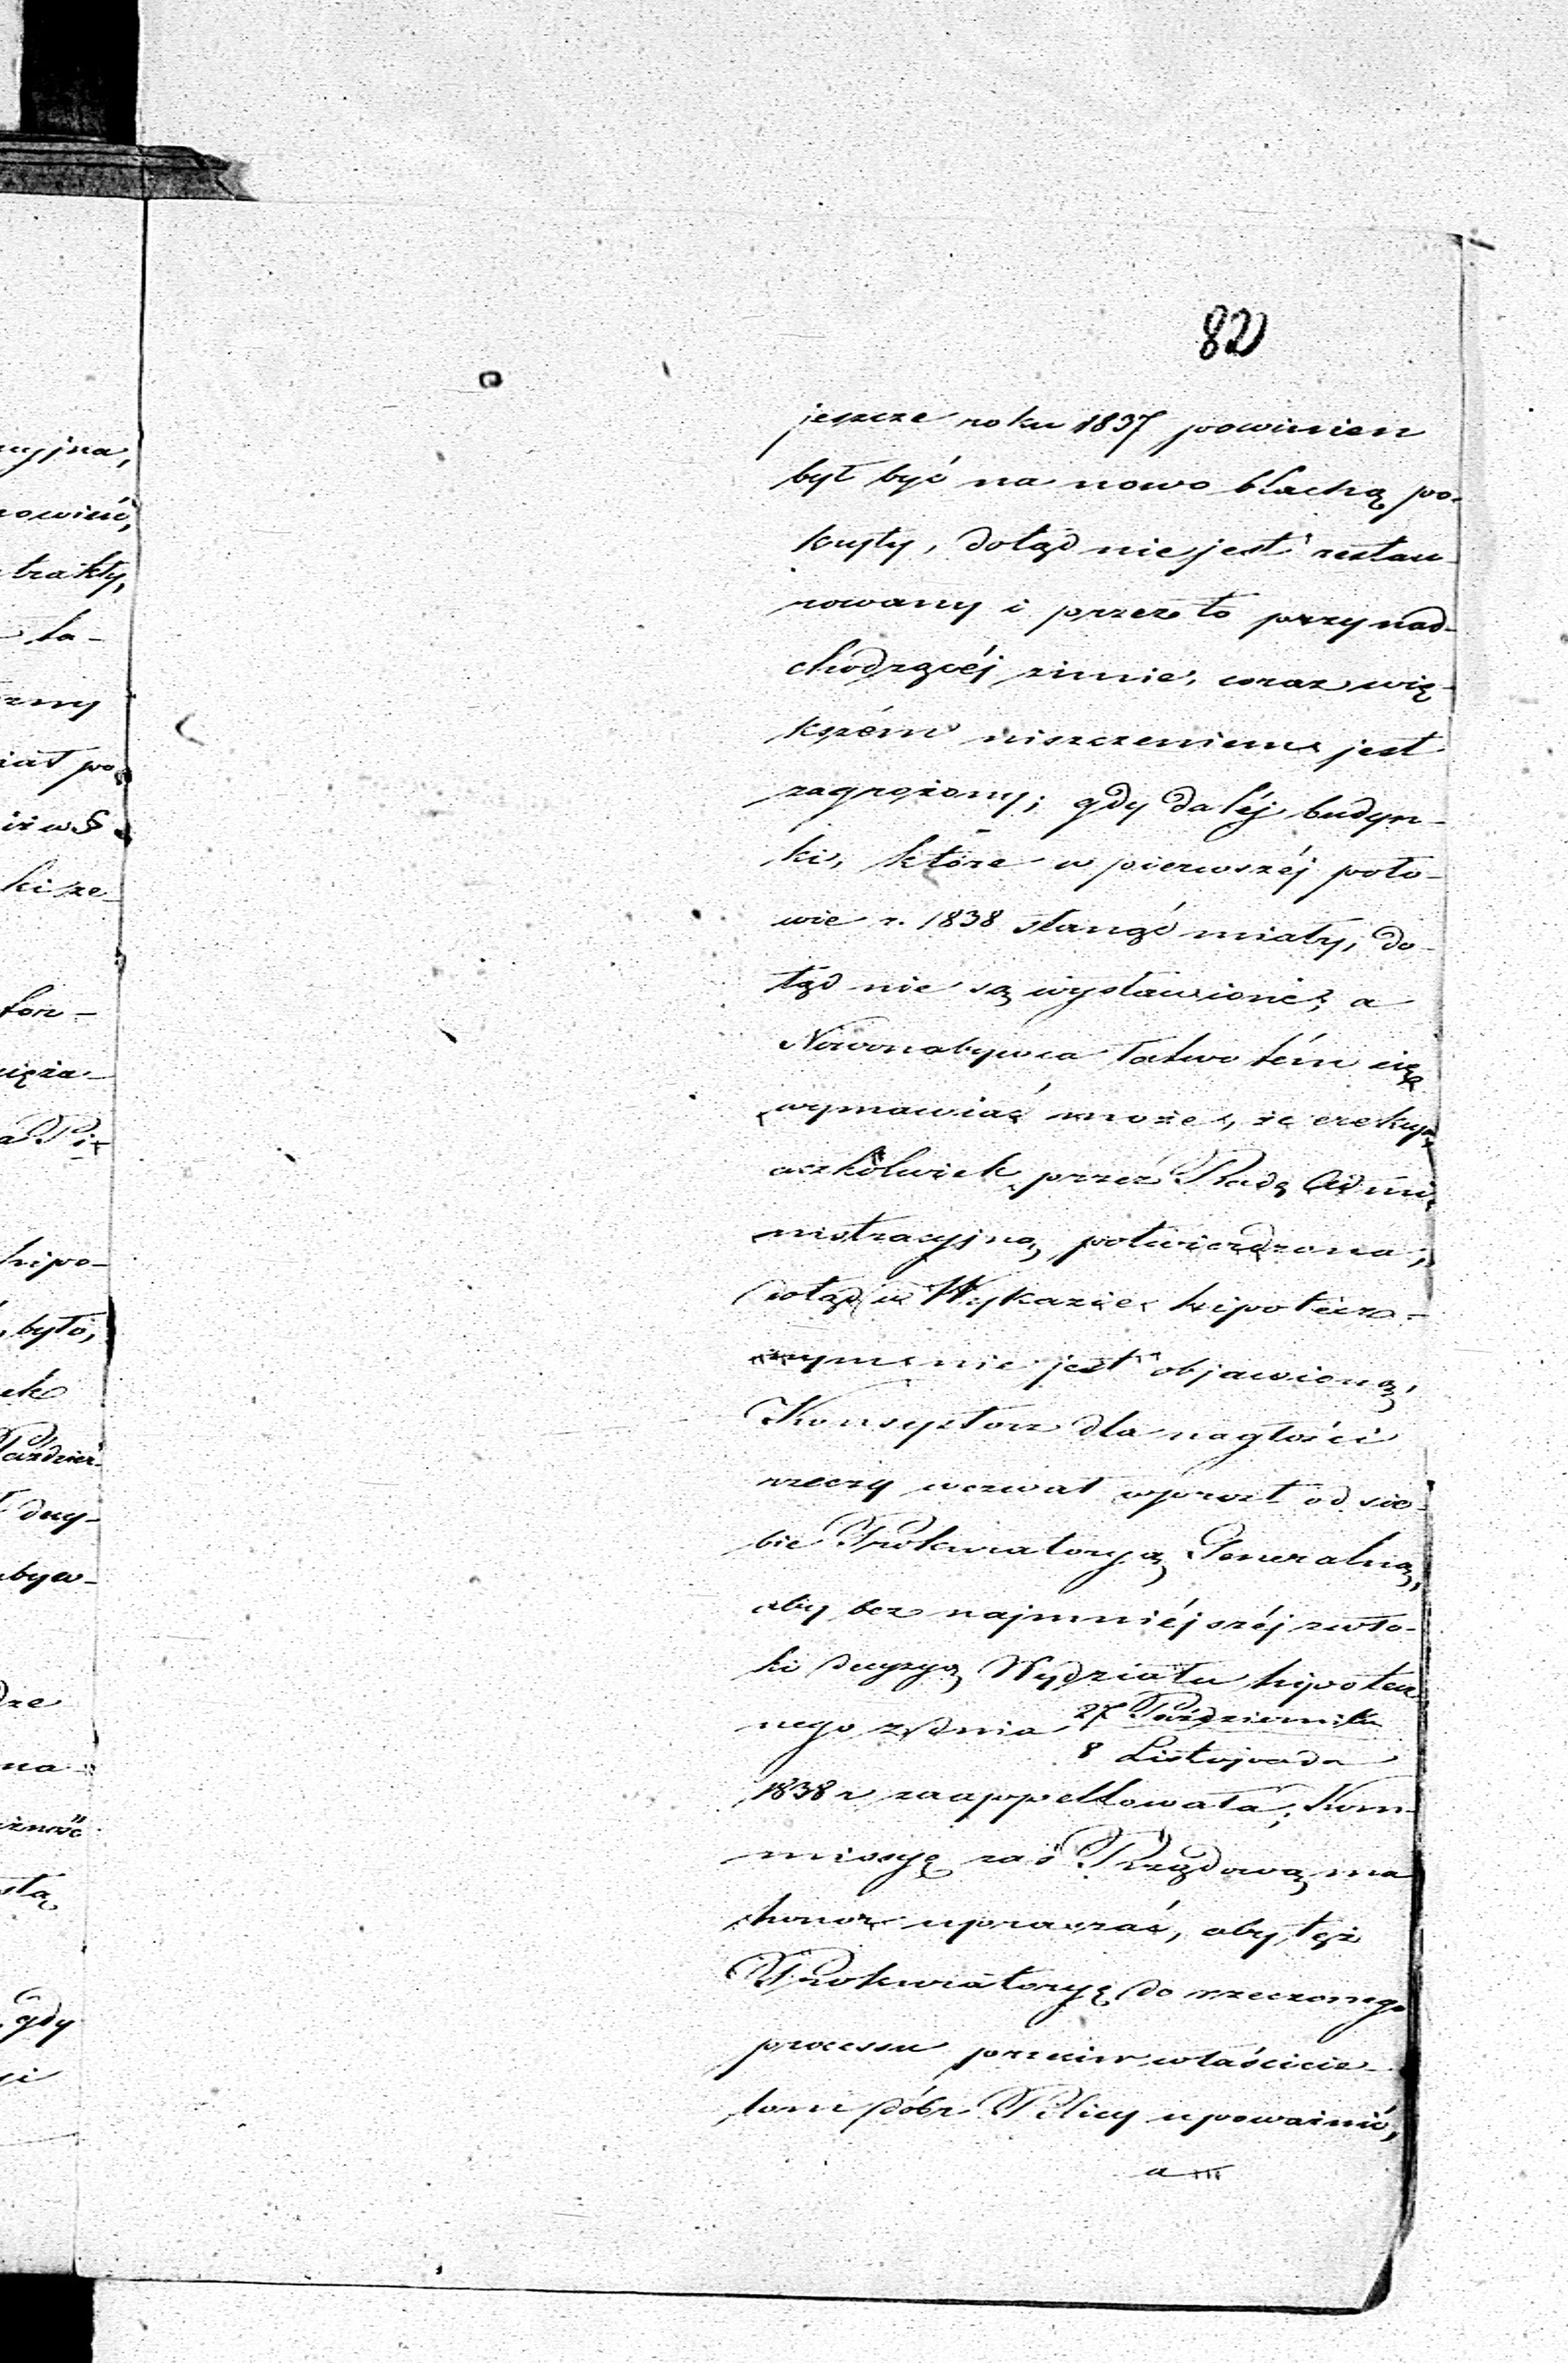 82
jeszcze roku 1837 powinien
był być na nowo blachą po-
kryty, dotąd nie jest restau-
rowany i przez to przy nad-
chodzącéj zimie, coraz wię-
kszém niszczeniem jest
zagrożony; gdy daléj budyn-
ki, które w pierwszéj poło-
wie r. 1838 stanąć miały, do-
tąd nie są wystawione, a
Nowonabywca łatwo tém się
wymawiać może, że erekcya
aczkolwiek przez Radę Admi-
nistracyjną potwierdzona,
dotąd w Wykazie hipotecz-
nym nie jest objawioną,
Konsystorz dla nagłości
rzeczy wezwał wprost od sie-
bie Prokuratoryą Generalną,
aby bez najmniéjszéj zwło-
ki decyzyą Wydziału hipotecz
nego z dnia 27 Października
8 Listopada
1838 r zaappellowała; Kom-
missyę zaś Rządową ma
honor upraszać, aby też
Prokuratoryę do rzeczonego
processu przeciw właścicie-
lom dóbr Pilicy upoważnić,
a
cyjna,
nowić,
trakty,
la-
zny
iał po
iż w §
ki ze
for-
hipo-
było,
ek
Paździer-
decy-
byw-
dze
na
żność
stą
gdy